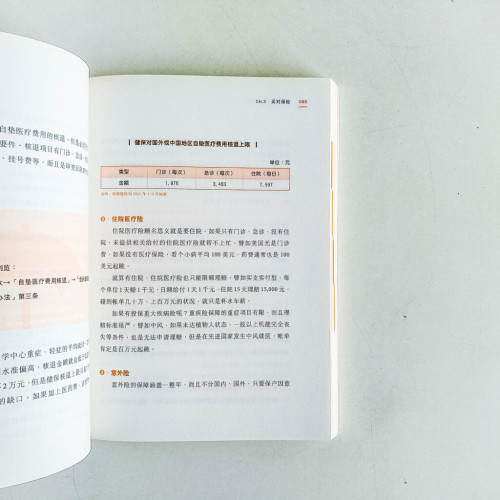 自垫医疗费用的核退，
要件，核退项目有门诊、急诊、
、挂号费等，而且是审核
浏览：
→「自垫医疗费用核退」→
办法」第三条
学中心重症、轻症的平均
水准偏高，核退金额就会
2万元，但是健保核退上限
的缺口，如果加上医药费、
CH.3 买对保险 085
健保对国外或中国地区自垫医疗费用核退上限
单位：元
类型 门诊（每次） 急诊（每次） 住院（每日）
金额 1,976 3,463 7,597
❷、住院医疗险
住院医疗险顾名思义就是要住院，如果只有门诊、急诊，没有住
院，未提供相关给付的住院医疗险就帮不上忙。譬如美国光是门诊
费，如果没有医疗保险，看个小病平均100美元，药费通常也是100
美元起跳。
就算有住院，住院医疗险也只能限额理赔，譬如实支实付型，每
个单位1天赔1千元，日额给付1天1千元，住院15天理赔15,000元，
碰到帐单几十万、上百万元的状况，就只是杯水车薪。
如果有投保重大疾病险呢？重疾险保障的重症项目有限，而且理
赔标准很严，譬如中风，如果未达植物人状态、一肢以上机能完全丧
失等条件，也是无法申请理赔，但是在先进国家发生中风就医，账单
肯定是百万元起跳。
❸、意外险
意外险的保障涵盖一整年，而且不分国内、国外，只要保户因意